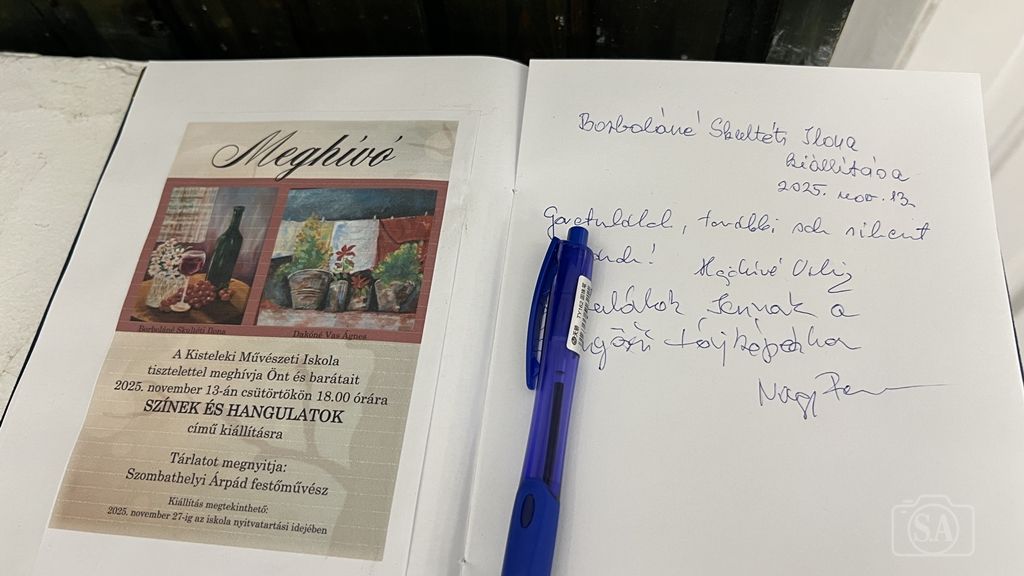 Meghívó
Borboláné Skultéti Ilona
Dakóné Vas Ágnes
A Kisteleki Művészeti Iskola
tisztelettel meghívja Önt és barátait
2025. november 13-án csütörtökön 18.00 órára
SZÍNEK ÉS HANGULATOK
című kiállításra
Tárlatot megnyitja:
Szombathelyi Árpád festőművész
Kiállítás megtekinthető:
2025. november 27-ig az iskola nyitvatartási idejében
Borboláné Skultéti Ilona
kiállítása
2025. nov. 13.
Gratulálok, további sok sikert
a
Nagy
SA